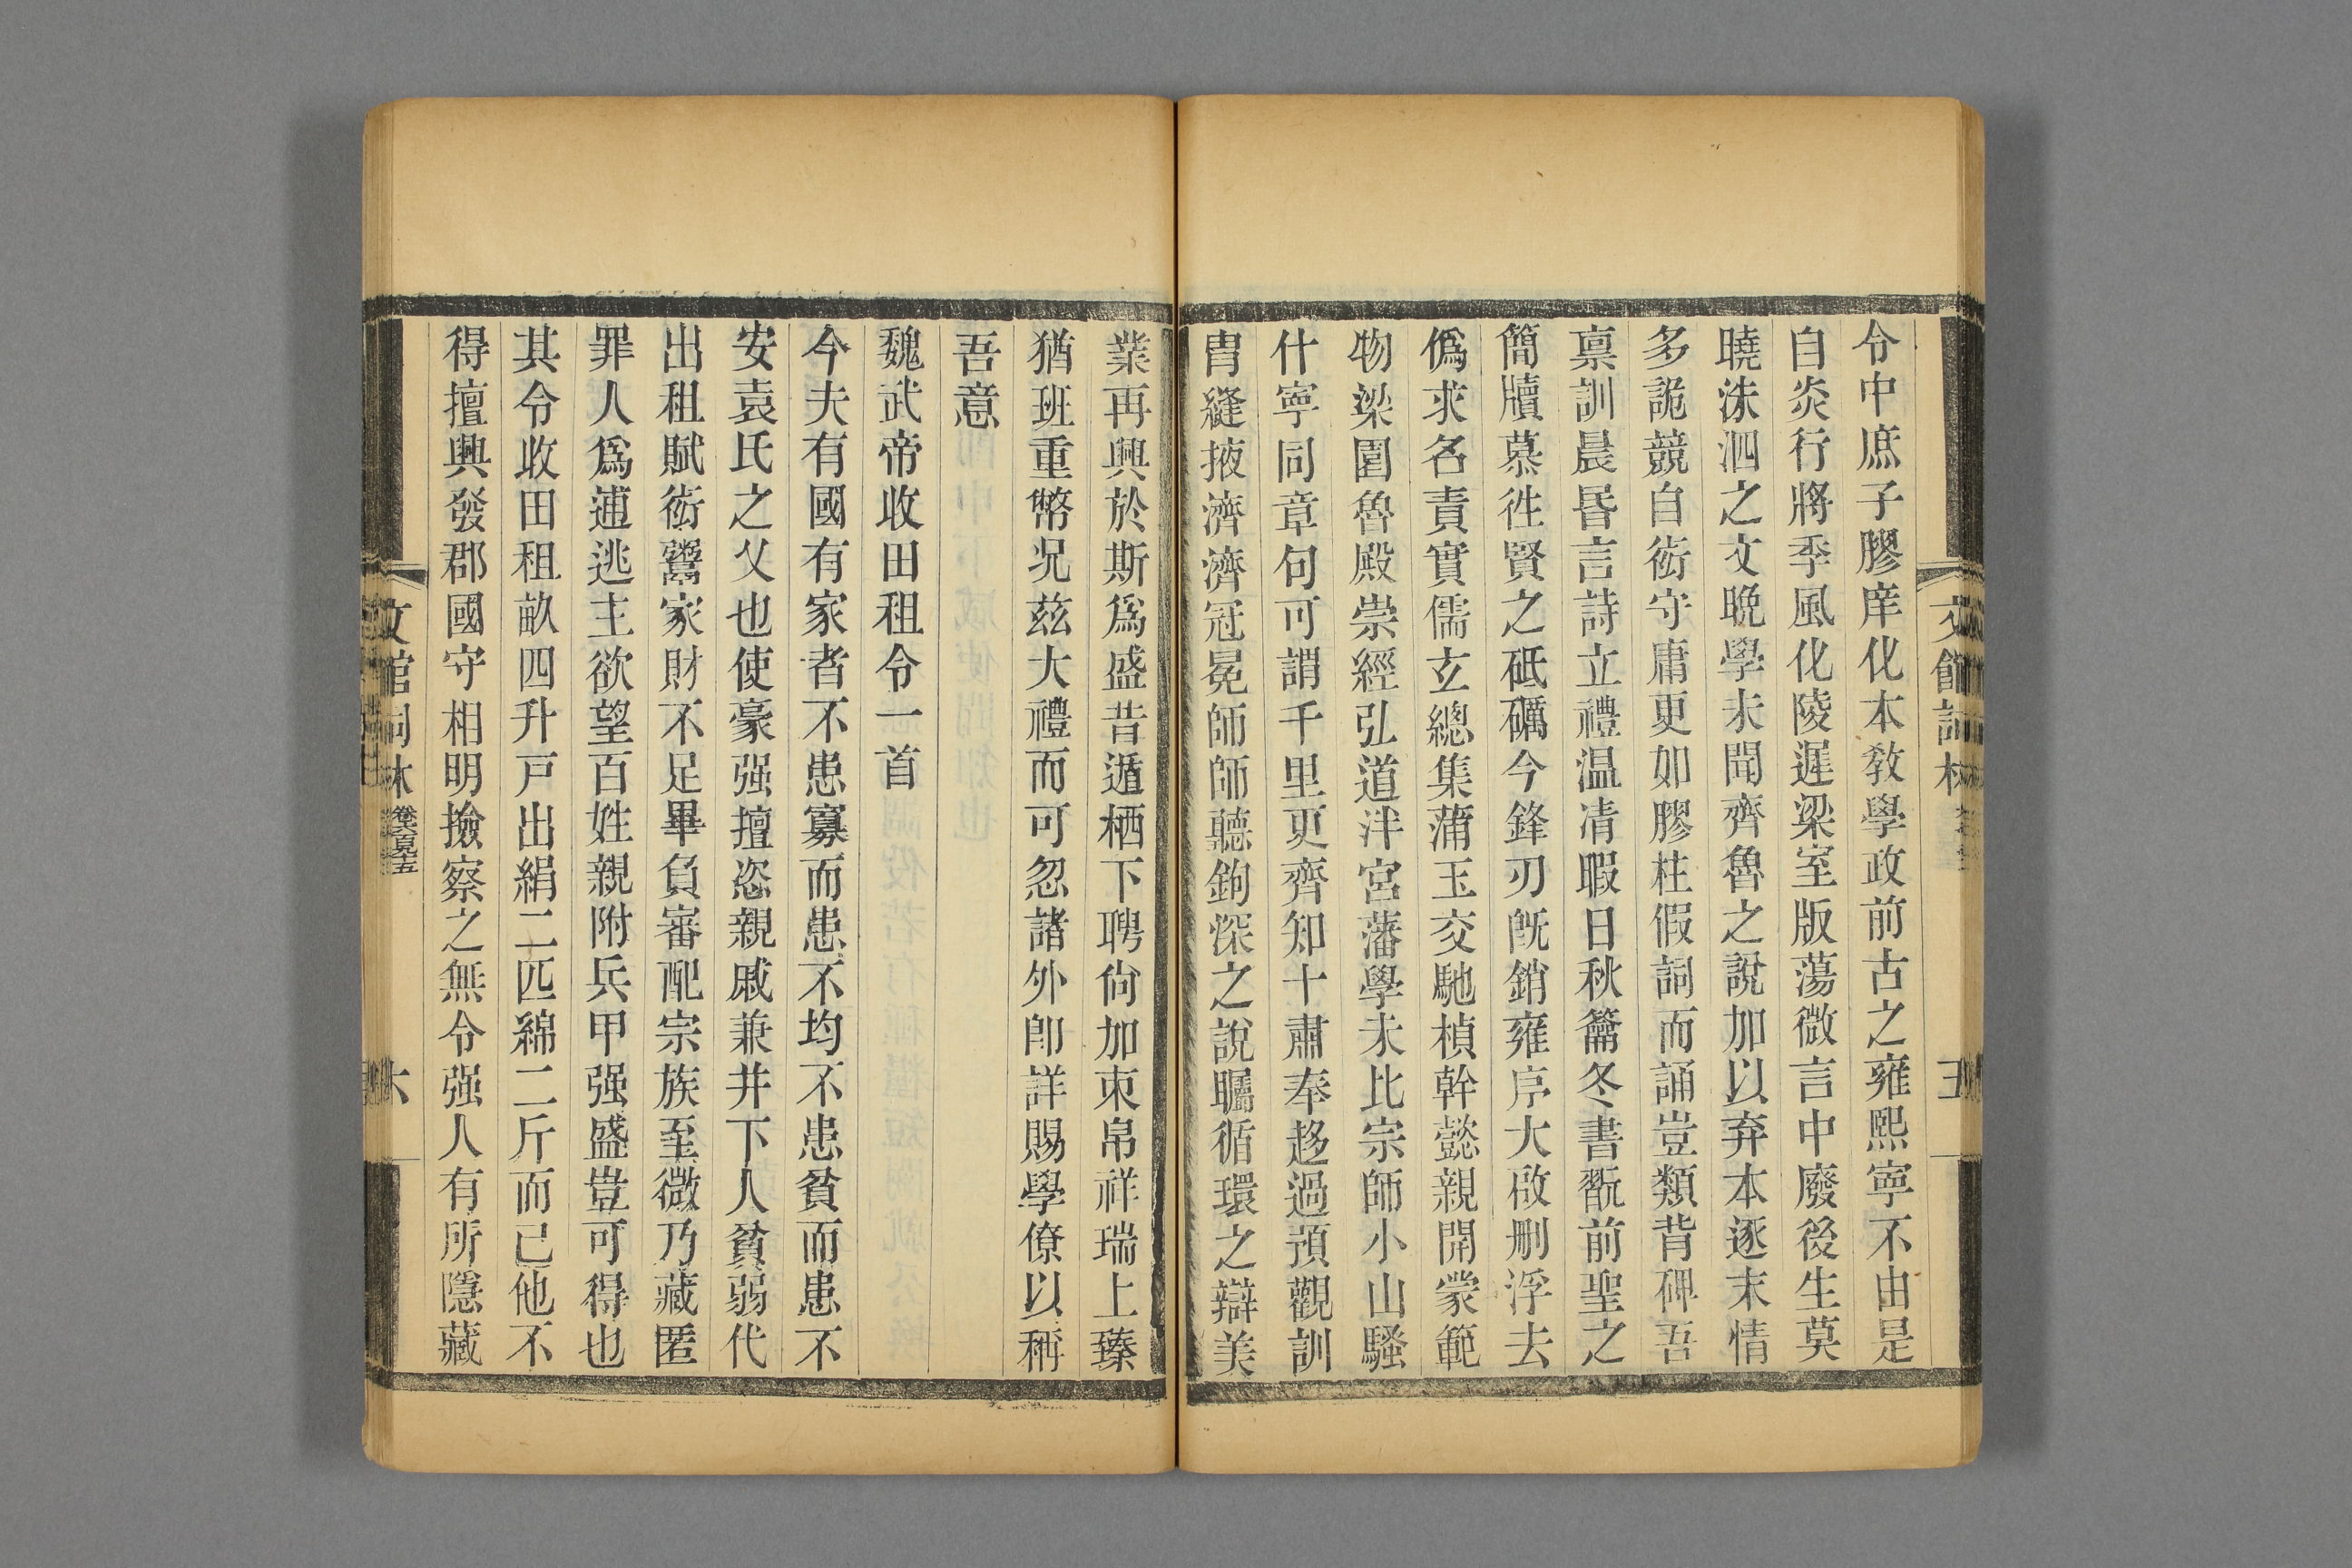 令中庶子膠庠化本教學政前古之雍熙寧不由是
自炎行將季風化陵遲梁室版蕩微言中廢後生莫
曉洙泗之文晚學未聞齊魯之說加以弃本逐末情
多詭競自衒守庸更如膠柱假詞而誦豈類背碑吾
稟訓晨昬言詩立禮温凊暇日秋籥冬書翫前聖之
簡牘慕徃賢之砥礪今鋒刃旣銷雍序大啟刪浮去
僞求名責實儒玄總集蒲玉交馳楨幹懿親開蒙範
物梁園魯殿崇經弘道泮宮藩學未比宗師小山騷
什寧同章句可謂千里更齊知十肅奉趍過預觀訓
胄縫掖濟濟冠冕師師聽鉤深之說矚循環之辯美
文館詞林
五
業再興於斯爲盛昔遁栖下聘尙加束帛祥瑞上臻
猶班重幣况茲大禮而可忽諸外卽詳賜學僚以稱
吾意
魏武帝收田租令一首
今夫有國有家者不患寡而患不均不患貧而患不
安袁氏之父也使豪强擅恣親戚兼井下人貧弱代
出租賦衒鬻家財不足畢負審配宗族至微乃藏匿
罪人爲逋逃主欲望百姓親附兵甲强盛豈可得也
其令收田租畝四升戸出絹二匹綿二斤而已他不
得擅興發郡國守相明撿察之無令强人有所隱藏
文館詞林
六